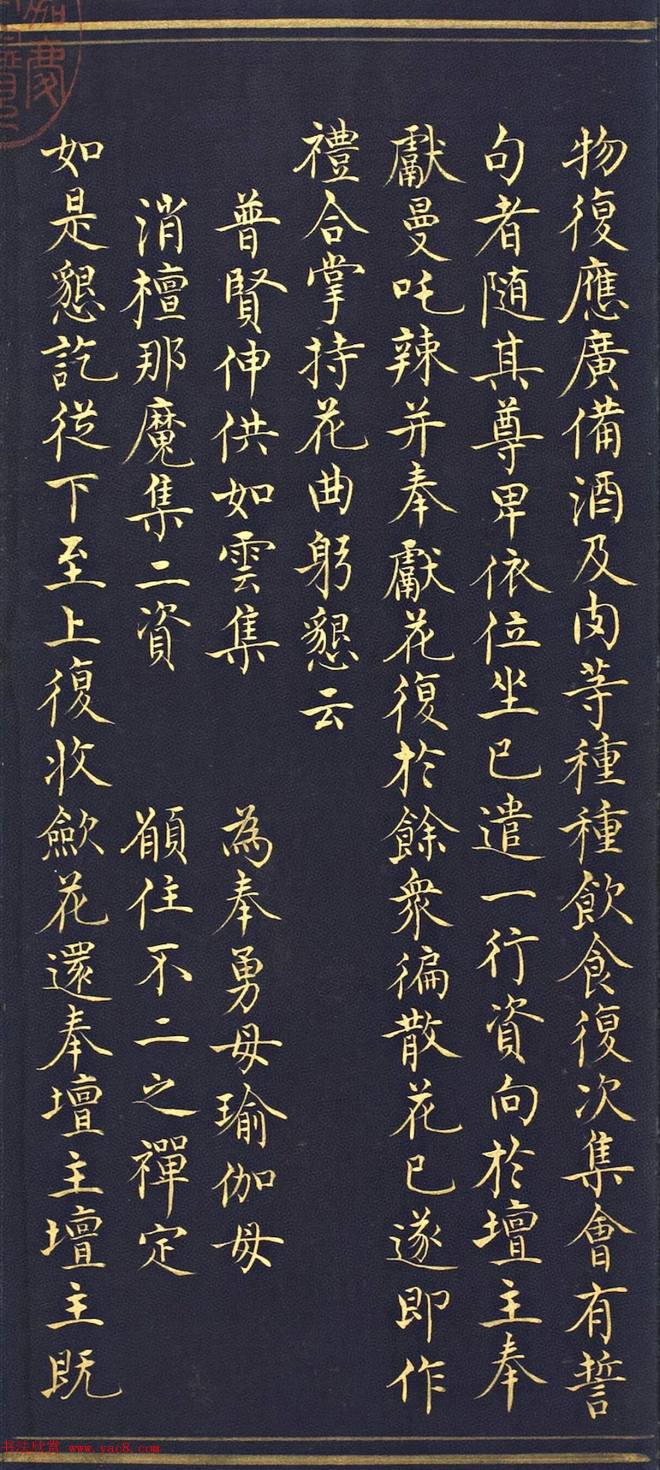 物復應廣備酒及肉等種種飲食復次集會有誓
句者随其尊卑依位坐已遣一行資向於壇主奉
獻曼吒辣并奉獻花復於餘衆徧散花已遂即作
禮合掌持花曲躬懇云
普賢伸供如雲集 為奉勇母瑜伽母
消檀那魔集二資 願住不二之禪定
如是懇訖從下至上復收歛花還奉壇主壇主既
书法欣赏 www.yac8.com